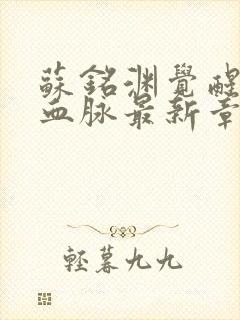 蘇銘渊覺醒
血脉最新章
輕暮九九